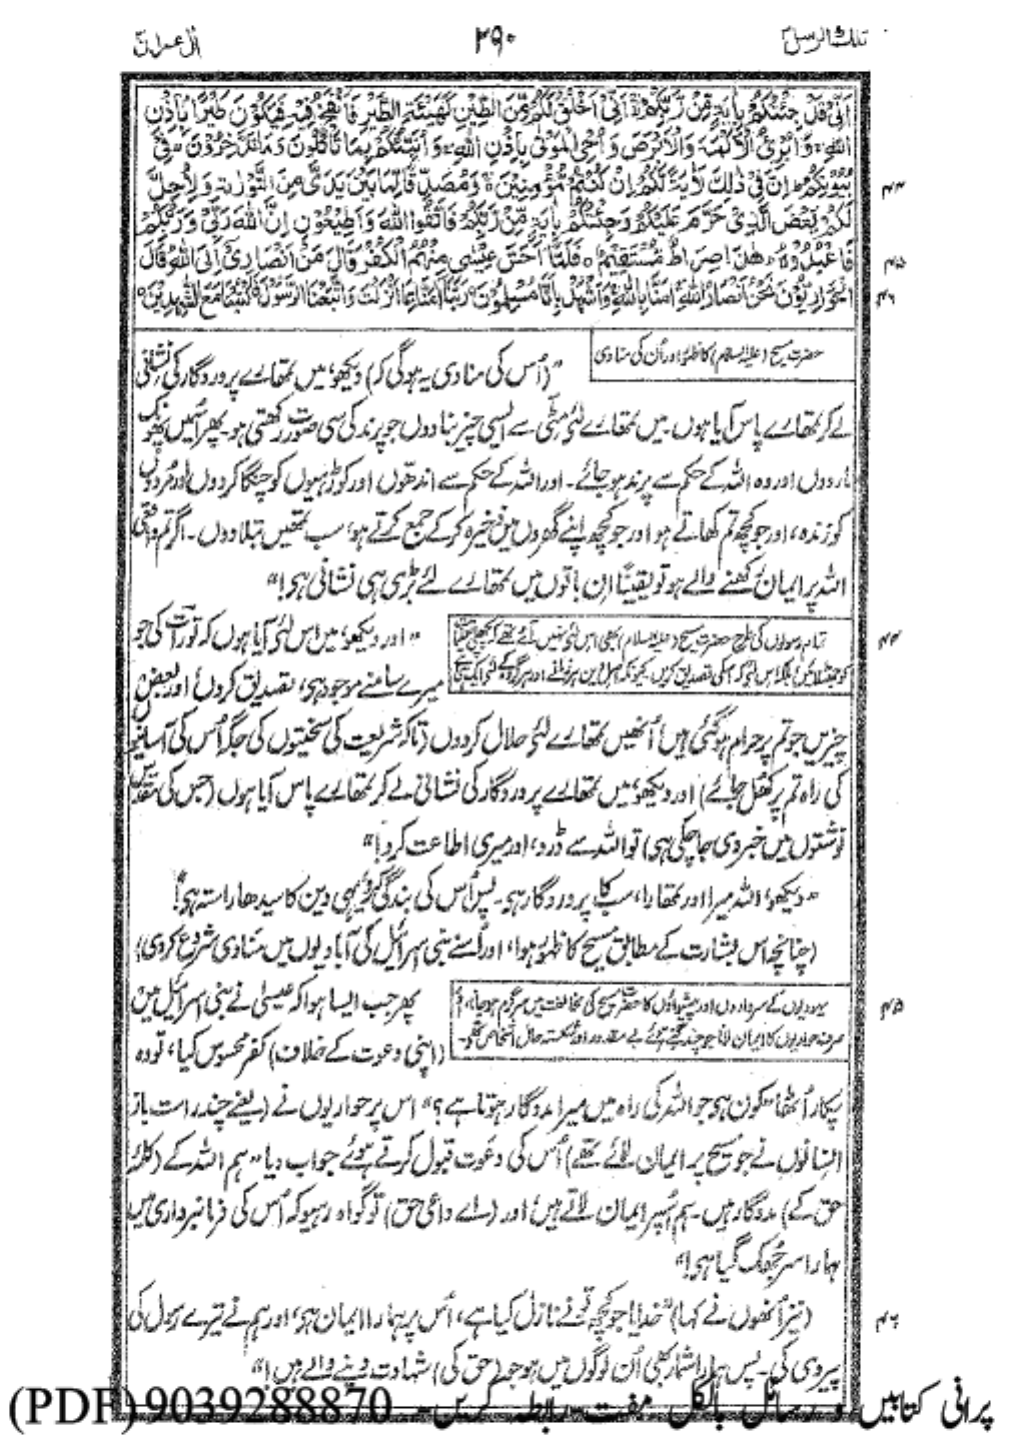 تلك الرسل ۲۹۰ اٰل عمران
اَنِّیْ قَدْ جِئْتُكُمْ بِاٰیَةٍ مِّنْ رَّبِّكُمْ اَنِّیْ اَخْلُقُ لَكُمْ مِّنَ الطِّیْنِ كَهَیْئَةِ الطَّیْرِ فَاَنْفُخُ فِیْهِ فَیَكُوْنُ طَیْرًا بِاِذْنِ
اللّٰهِ وَاُبْرِئُ الْاَكْمَهَ وَالْاَبْرَصَ وَاُحْیِ الْمَوْتٰی بِاِذْنِ اللّٰهِ وَاُنَبِّئُكُمْ بِمَا تَاْكُلُوْنَ وَمَا تَدَّخِرُوْنَ فِیْ
بُیُوْتِكُمْ اِنَّ فِیْ ذٰلِكَ لَاٰیَةً لَّكُمْ اِنْ كُنْتُمْ مُّؤْمِنِیْنَ وَمُصَدِّقًا لِّمَا بَیْنَ یَدَیَّ مِنَ التَّوْرٰىةِ وَلِاُحِلَّ ۴۴
لَكُمْ بَعْضَ الَّذِیْ حُرِّمَ عَلَیْكُمْ وَجِئْتُكُمْ بِاٰیَةٍ مِّنْ رَّبِّكُمْ فَاتَّقُوا اللّٰهَ وَاَطِیْعُوْنِ اِنَّ اللّٰهَ رَبِّیْ وَرَبُّكُمْ
فَاعْبُدُوْهُ هٰذَا صِرَاطٌ مُّسْتَقِیْمٌ فَلَمَّاۤ اَحَسَّ عِیْسٰی مِنْهُمُ الْكُفْرَ قَالَ مَنْ اَنْصَارِیْ اِلَی اللّٰهِ قَالَ ۴۵
الْحَوَارِیُّوْنَ نَحْنُ اَنْصَارُ اللّٰهِ اٰمَنَّا بِاللّٰهِ وَاشْهَدْ بِاَنَّا مُسْلِمُوْنَ رَبَّنَا اٰمَنَّا بِمَا اَنْزَلْتَ وَاتَّبَعْنَا الرَّسُوْلَ فَاكْتُبْنَا مَعَ الشّٰهِدِیْنَ ۴۶
حضرت مسیح (علیہ السلام) کا ظہور اور اُن کی منادی
"(اُس کی منادی یہ ہوگی کہ) دیکھو، میں تمھارے پروردگار کی نشانی
لے کر تمھارے پاس آیا ہوں۔ میں تمھارے لئے مٹی سے ایسی چیز بنا دوں جو پرند کی سی صورت رکھتی ہو۔ پھر اُسمیں پھونک
مار دوں اور وہ اللہ کے حکم سے پرند ہو جائے۔ اور اللہ کے حکم سے اندھوں اور کوڑہیوں کو چنگا کر دوں اور مُردوں
کو زندہ، اور جو کچھ تم کھاتے ہو اور جو کچھ اپنے گھروں میں ذخیرہ کر کے جمع کرتے ہو، سب تمھیں بتلا دوں۔ اگر تم واقعی
اللہ پر ایمان رکھنے والے ہو تو یقیناً ان باتوں میں تمھارے لئے بڑی ہی نشانی ہی!"
تمام رسولوں کی طرح حضرت مسیح (علیہ السلام) بھی اس لئے نہیں آئے تھے کہ پچھلی
کو جھٹلائیں بلکہ اس لئے کہ اسکی تصدیق کریں۔ کیونکہ اصل دین ہر زمانے اور ہر گروہ کے لئے ایک ہی ہے
۴۴ "اور دیکھو، میں اس لئے آیا ہوں کہ تورات کی جو
میرے سامنے موجود ہی، تصدیق کروں، اور بعض
چیزیں جو تم پر حرام ہو گئی ہیں، اُنھیں تمھارے لئے حلال کر دوں (تاکہ شریعت کی سختیوں کی جگہ اُس کی آسانی
کی راہ تم پر کھل جائے) اور دیکھو، میں تمھارے پروردگار کی نشانی لے کر تمھارے پاس آیا ہوں (جس کی مقدس
نوشتوں میں خبر دی جا چکی ہی) تو اللہ سے ڈرو، اور میری اطاعت کرو!"
"دیکھو، اللہ میرا اور تمھارا، سب کا پروردگار ہی۔ پس اُس کی بندگی کرو۔ یہی دین کا سیدھا راستہ ہی!"
(چنانچہ اس بشارت کے مطابق مسیح کا ظہور ہوا، اور اُسنے بنی اسرائیل کی آبادیوں میں منادی شروع کر دی)
یہودیوں کے سرداروں اور پیشواؤں کا حضرت مسیح کی مخالفت میں سرگرم ہو جانا، اور
صرف حواریوں کا ایمان لانا جو چند گنے ہوئے بے مقدور اور شکستہ حال اشخاص تھے۔
۴۵ پھر جب ایسا ہوا کہ عیسیٰ نے بنی اسرائیل میں
(اپنی دعوت کے خلاف) کفر محسوس کیا، تو وہ
پکار اُٹھا "کون ہی جو اللہ کی راہ میں میرا مددگار ہوتا ہے؟" اس پر حواریوں نے (یعنے چند راست باز
انسانوں نے جو مسیح پر ایمان لائے تھے) اُس کی دعوت قبول کرتے ہوئے جواب دیا "ہم اللہ کے (کلمۂ
حق کے) مددگار ہیں۔ ہم اُسپر ایمان لاتے ہیں، اور (اے داعی حق) تو گواہ رہیو کہ اُس کی فرمانبرداری میں
ہمارا سر جھک گیا ہی!"
۴۶ (نیز اُنھوں نے کہا) "خدایا جو کچھ تو نے نازل کیا ہے، اُس پر ہمارا ایمان ہی، اور ہم نے تیرے رسول کی
پیروی کی۔ پس ہمارا شمار بھی اُن لوگوں میں ہو جو (حق کی) شہادت دینے والے ہیں!"
پرانی کتابیں و رسائل بالکل مفت رابطہ کریں۔ 9039288870 (PDF)